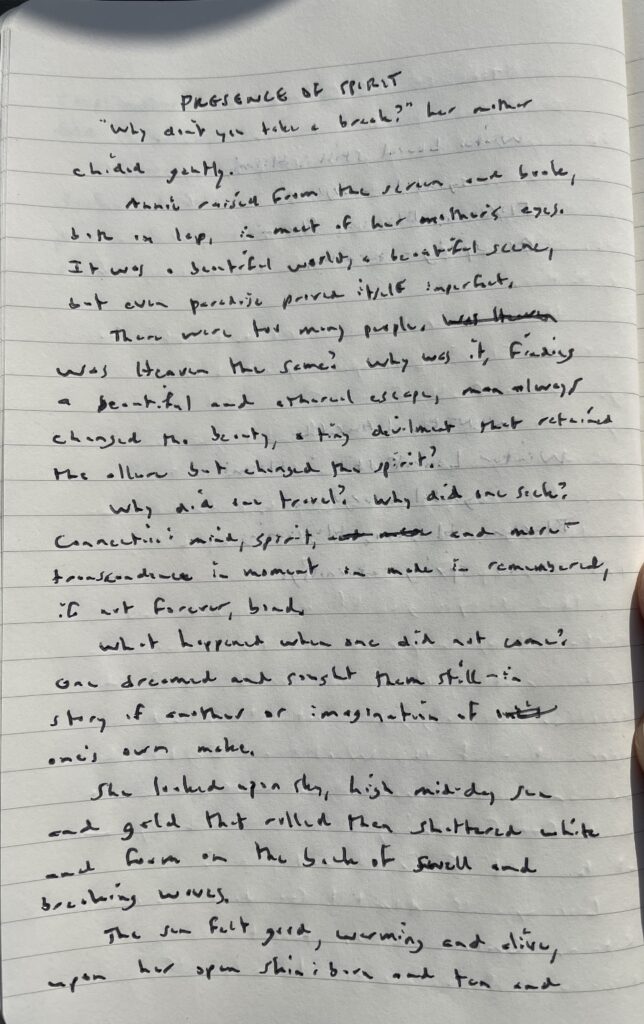 PRESENCE OF SPIRIT
"Why don't you take a break?" her mother
chided gently.
Annie raised from the screen and book,
both in lap, to meet of her mother's eyes.
It was a beautiful world, a beautiful scene,
but even paradise proved itself imperfect.
There were too many people. was Heaven
Was Heaven the same? Why was it, finding
a beautiful and ethereal escape, man always
changed the beauty, a tiny devilment that retained
the allure but changed the spirit?
Why did one travel? Why did one seek?
Connection: mind, spirit, and more and more—
transcendence in moment in made in remembered,
if not forever, bond.
What happened when one did not come?
One dreamed and sought them still—in
story of another or imagination of
one's own make.
She looked upon sky, high mid-day sun
and gold that rolled then shattered white
and foam on the back of swell and
breaking waves.
The sun felt good, warming and alive,
upon her open skin: born and tan and